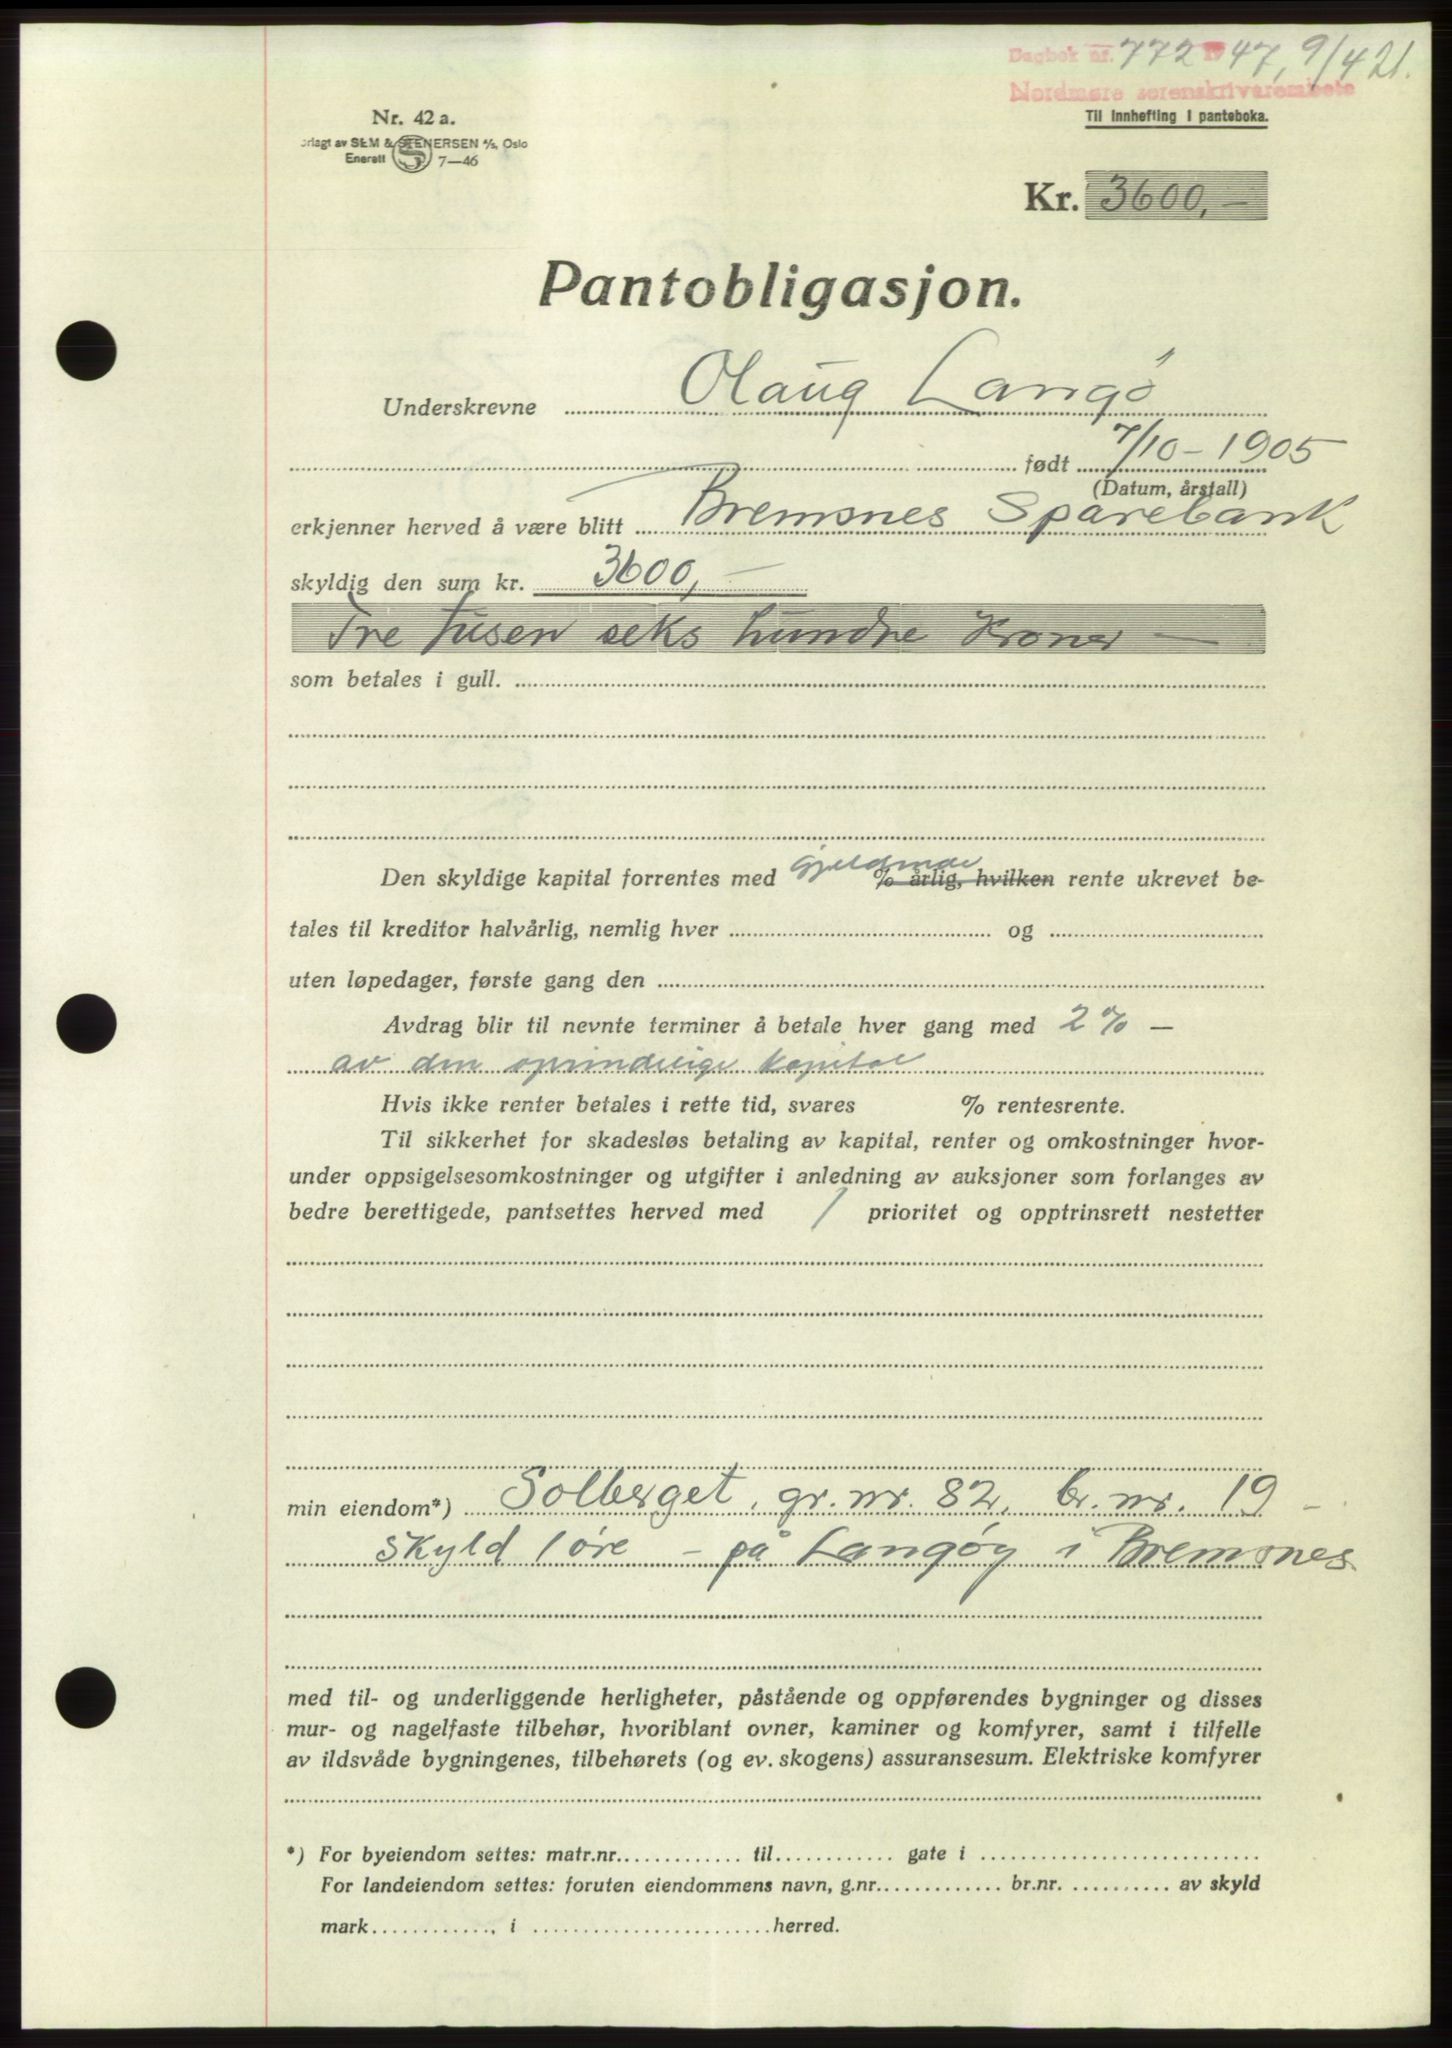 Dagbok nr. 772 1947, 9/4 21.
Nordmøre sorenskriverembete
Til innhefting i panteboka.
Nr. 42 a.
orlagt av SEM & STENERSEN A/S, Oslo
Enerett S 7—46
Kr. 3600,—
Pantobligasjon.
Underskrevne Olaug Langö
født 7/10 – 1905
(Datum, årstall)
erkjenner herved å være blitt Bremsnes Sparebank
skyldig den sum kr. 3600,—
Tre tusen seks hundre Kroner —
som betales i gull.
Den skyldige kapital forrentes med gjeldende % årlig, hvilken rente ukrevet be-
tales til kreditor halvårlig, nemlig hver og
uten løpedager, første gang den
Avdrag blir til nevnte terminer å betale hver gang med 2% —
av den oprindelige kapital
Hvis ikke renter betales i rette tid, svares % rentesrente.
Til sikkerhet for skadesløs betaling av kapital, renter og omkostninger hvor-
under oppsigelsesomkostninger og utgifter i anledning av auksjoner som forlanges av
bedre berettigede, pantsettes herved med 1 prioritet og opptrinsrett nestetter
min eiendom*) Solberget, gr. nr. 82, br. nr. 19 –
skyld 1 øre – på Langøy i Bremsnes.
med til- og underliggende herligheter, påstående og oppførendes bygninger og disses
mur- og nagelfaste tilbehør, hvoriblant ovner, kaminer og komfyrer, samt i tilfelle
av ildsvåde bygningenes, tilbehørets (og ev. skogens) assuransesum. Elektriske komfyrer
*) For byeiendom settes: matr.nr. til gate i
For landeiendom settes: foruten eiendommens navn, g.nr. br.nr. av skyld
mark , i herred.